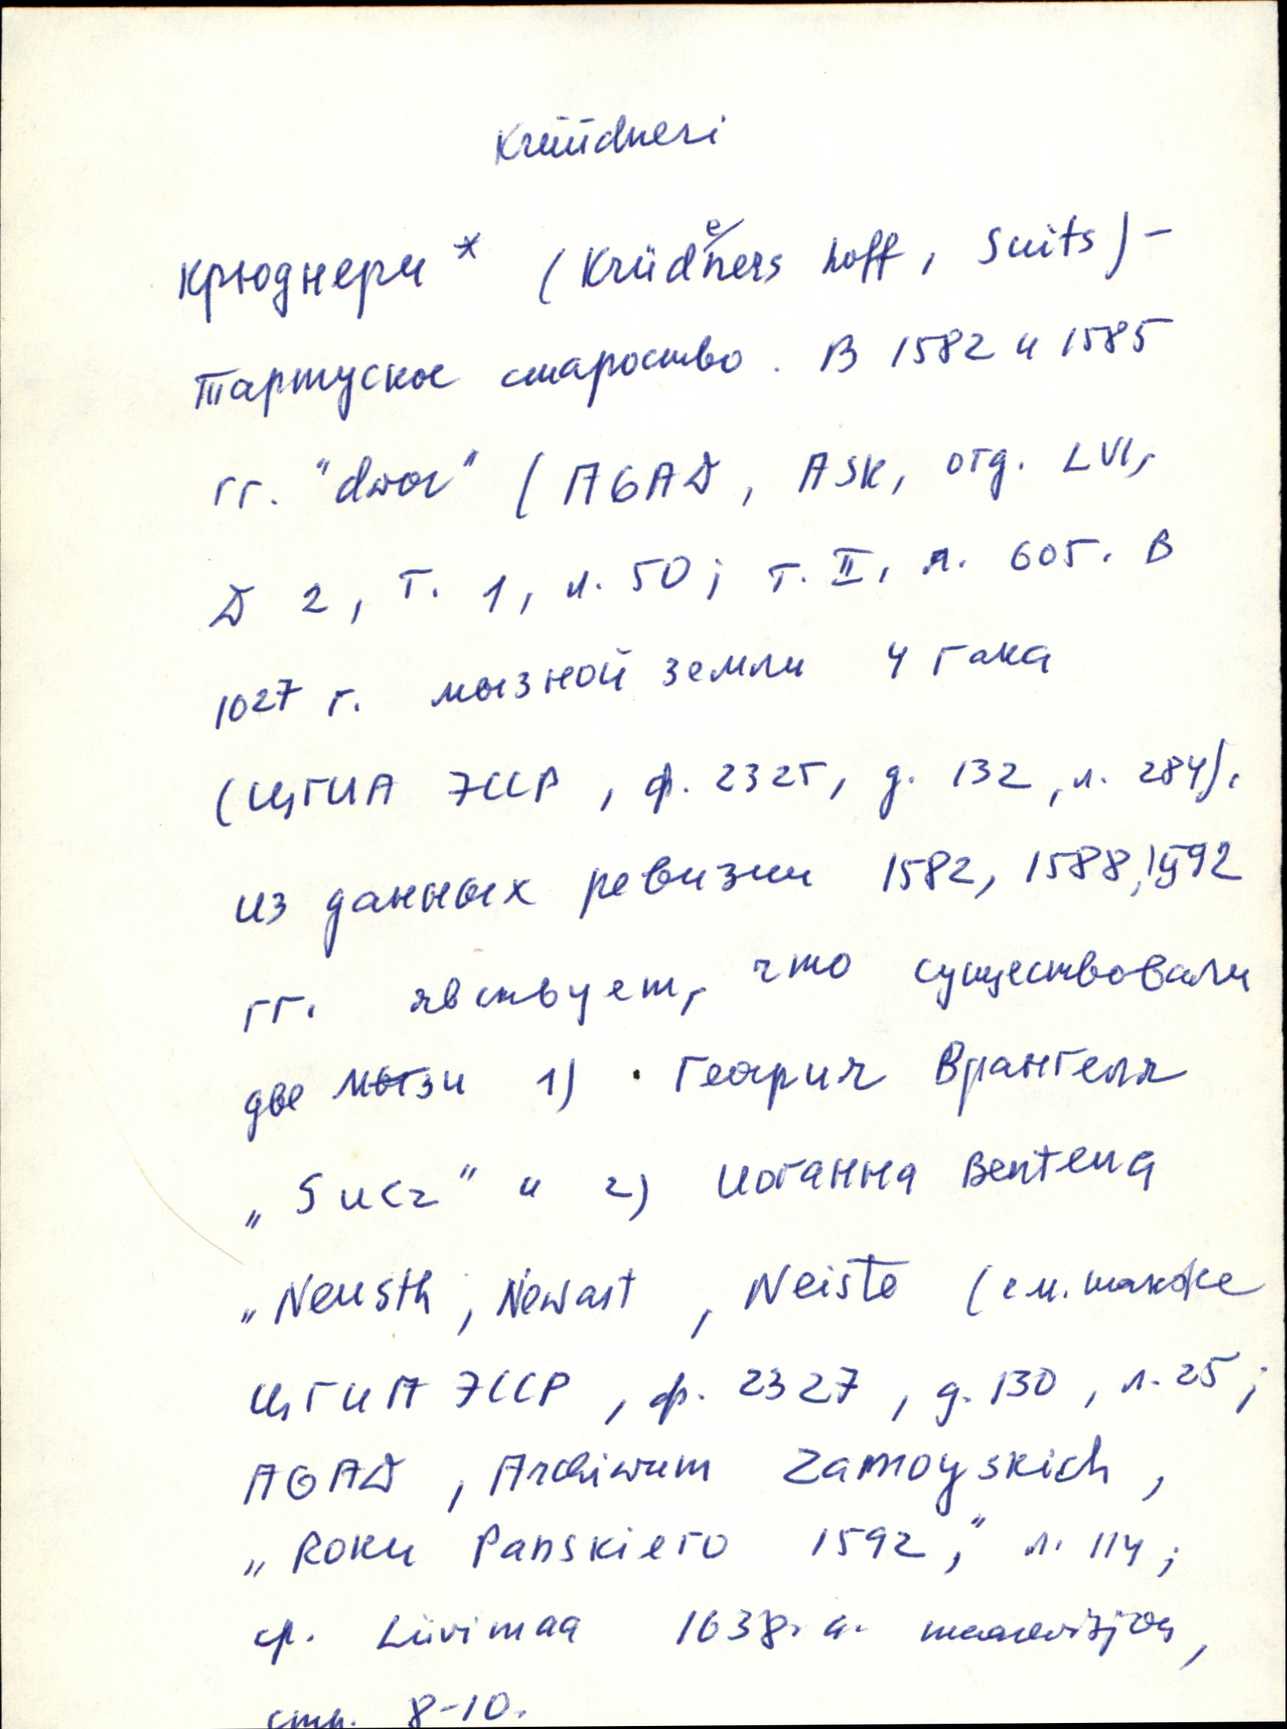 Krüüdneri
Крюднери * (Krüdeners hoff, Suits) -
Тартуское староство. В 1582 и 1585
гг. "dwor" (AGAD, ASK, отд. LVI,
D 2, т. 1, л. 50; т. II, л. 605. В
1027 г. мызной земли 4 гака
(ЦГИА ЭССР, ф. 2325, д. 132, л. 284).
Из данных ревизии 1582, 1588, 1592
гг. явствует, что существовали
две мызи 1) Георгия Врангеля
„Sucz" и 2) Иоганна Вентена
„Neusth, Newast, Neiste (см. также
ЦГИА ЭССР, ф. 2327, д. 130, л. 25;
AGAD, Archiwum Zamoyskich,
„Roku Panskiego 1592," л. 114;
ср. Liivimaa 1638. a. maarevisjon,
стр. 8-10.